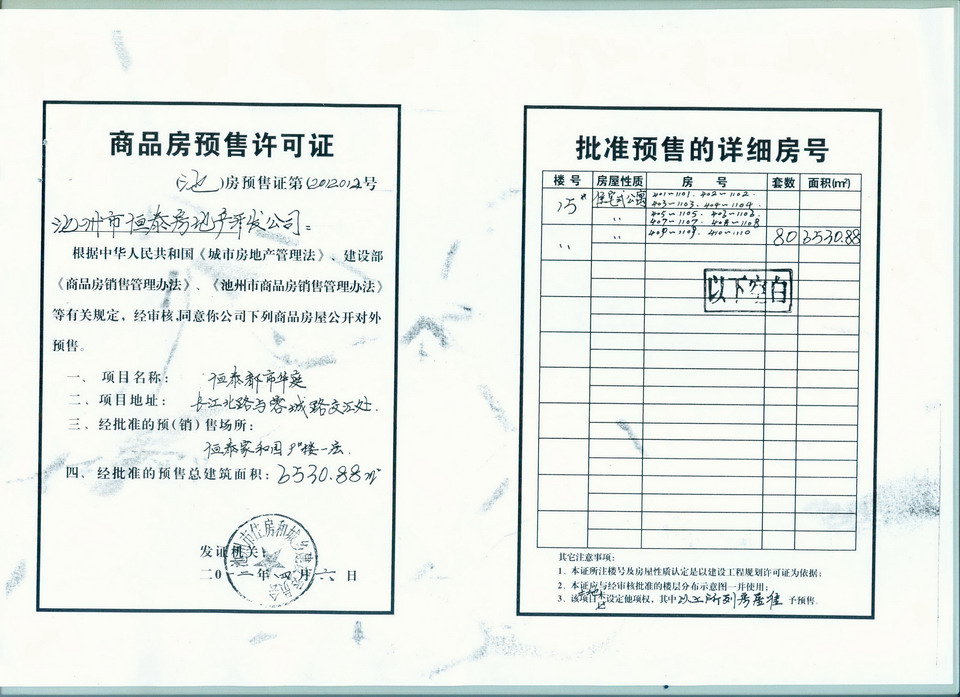 商品房预售许可证
(池)房预售证第(2012012)号
池州市恒泰房地产开发公司：
根据中华人民共和国《城市房地产管理法》、建设部
《商品房销售管理办法》、《池州市商品房销售管理办法》
等有关规定，经审核，同意你公司下列商品房屋公开对外
预售。
一、项目名称： 恒泰都市华庭
二、项目地址： 长江北路与蓉城路交汇处.
三、经批准的预(销)售场所：
恒泰家和园9#楼一层.
四、经批准的预售总建筑面积：6530.88㎡
发证机关：
二〇一二年四月六日
批准预售的详细房号
楼号 房屋性质 房号 套数 面积(m²)
15# 住宅式公寓 401~1101. 402~1102.
403~1103. 404~1104.
〃 405~1105. 406~1106.
407~1107. 408~1108
〃 〃 409~1109. 410~1110 80 6530.88
以下空白
其它注意事项：
1、本证所注楼号及房屋性质认定是以建设工程规划许可证为依据；
2、本证应与经审核批准的楼层分布示意图一并使用；
3、该项目未设定他项权，其中以上所列房屋准予预售.